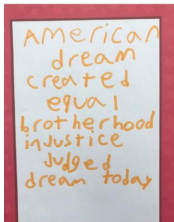 American
dream
created
equal
brotherhood
injustice
Judged
dream today